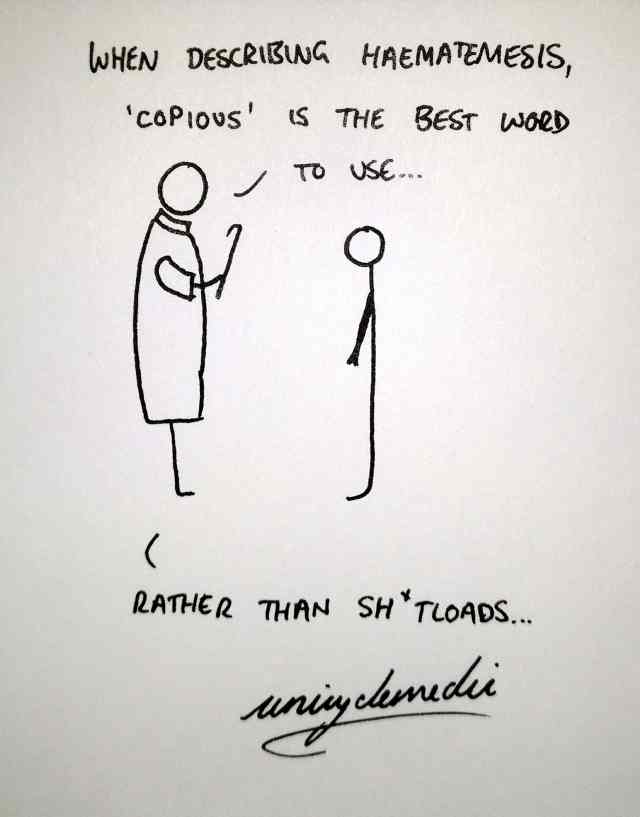 WHEN DESCRIBING HAEMATEMESIS,
'COPIOUS' IS THE BEST WORD
TO USE...
RATHER THAN SH*TLOADS...
unicyclemedic